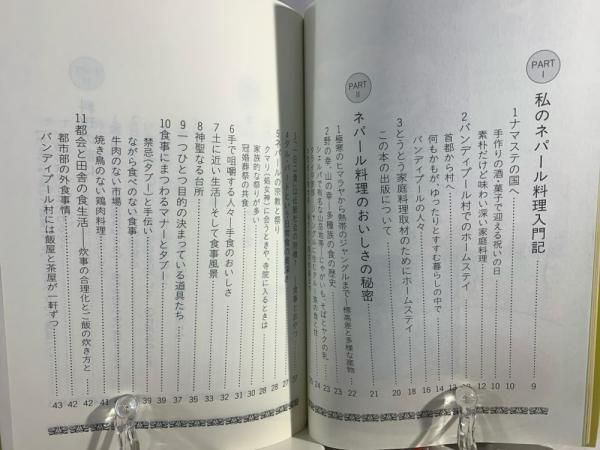 PART I
私のネパール料理入門記 9
1 ナマステの国へ 10
手作りの酒・菓子で迎える祝いの日 10
素朴だけど味わい深い家庭料理 12
2 バンディプール村でのホームステイ
首都から村へ
何もかもが、ゆったりとすすむ暮らしの中で 14
バンディプールの人々 18
3 とうとう家庭料理取材のためにホームステイ
この本の出版について 20
PART II
ネパール料理のおいしさの秘密 21
1 極寒のヒマラヤから熱帯のジャングルまで―標高差と多様な産物
2 野の幸・山の幸―多種族の食の歴史
シェルパで有名な山岳地帯
じゃがいも、そばとヤクの乳
5 ネパールの宗教と祭り
クマリ(処女神)に会うときや、寺院に入るときは 28
家族的な祭りが多い 28
冠婚葬祭の共食
6 手で咀嚼する人々―手食のおいしさ
7 土に近い生活―そして食事風景
8 神聖なる台所
9 一つひとつ目的の決まっている道具たち
10 食事にまつわるマナーとタブー
禁忌(タブー)と手伝い
ながら食べのない食事
牛肉のない市場
焼き鳥のない鶏肉料理 41
11 都会と田舎の食生活―炊事の合理化とご飯の炊き方と 42
都市部の外食事情 42
バンディプール村には飯屋と茶屋が一軒ずつ 43